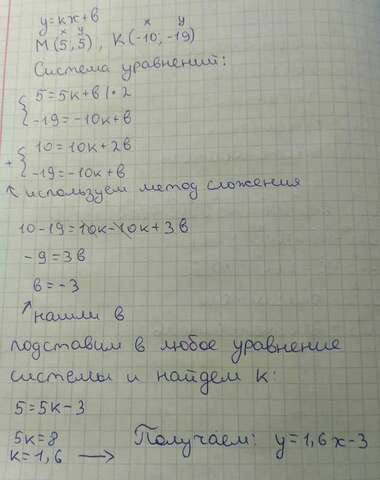 y=kx+b
x y x y
M(5,5), K(-10,-19)
Система уравнений:
{5=5k+b |·2
{-19=-10k+b
+{10=10k+2b
{-19=-10k+b
используем метод сложения
10-19=10k-10k+3b
-9=3b
b=-3
нашли b
подставим в любое уравнение
системы и найдем k:
5=5k-3
5k=8
k=1,6 → Получаем: y=1,6x-3